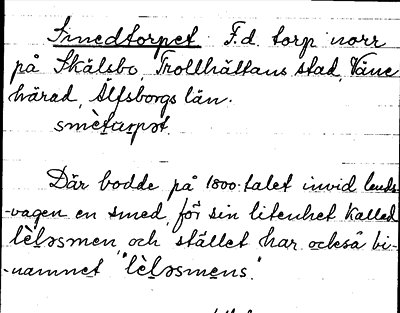 Smedtorpet. F.d. torp norr
på Skälsbo, Trollhättans stad, Väne
härad, Älfsborgs län.
smèt̲ar̲pət.
Där bodde på 1800-talet invid lands-
-vägen en smed, för sin litenhet kallad
lèl̲əsmen, och stället har också bi-
-namnet "lèl̲əsmens."